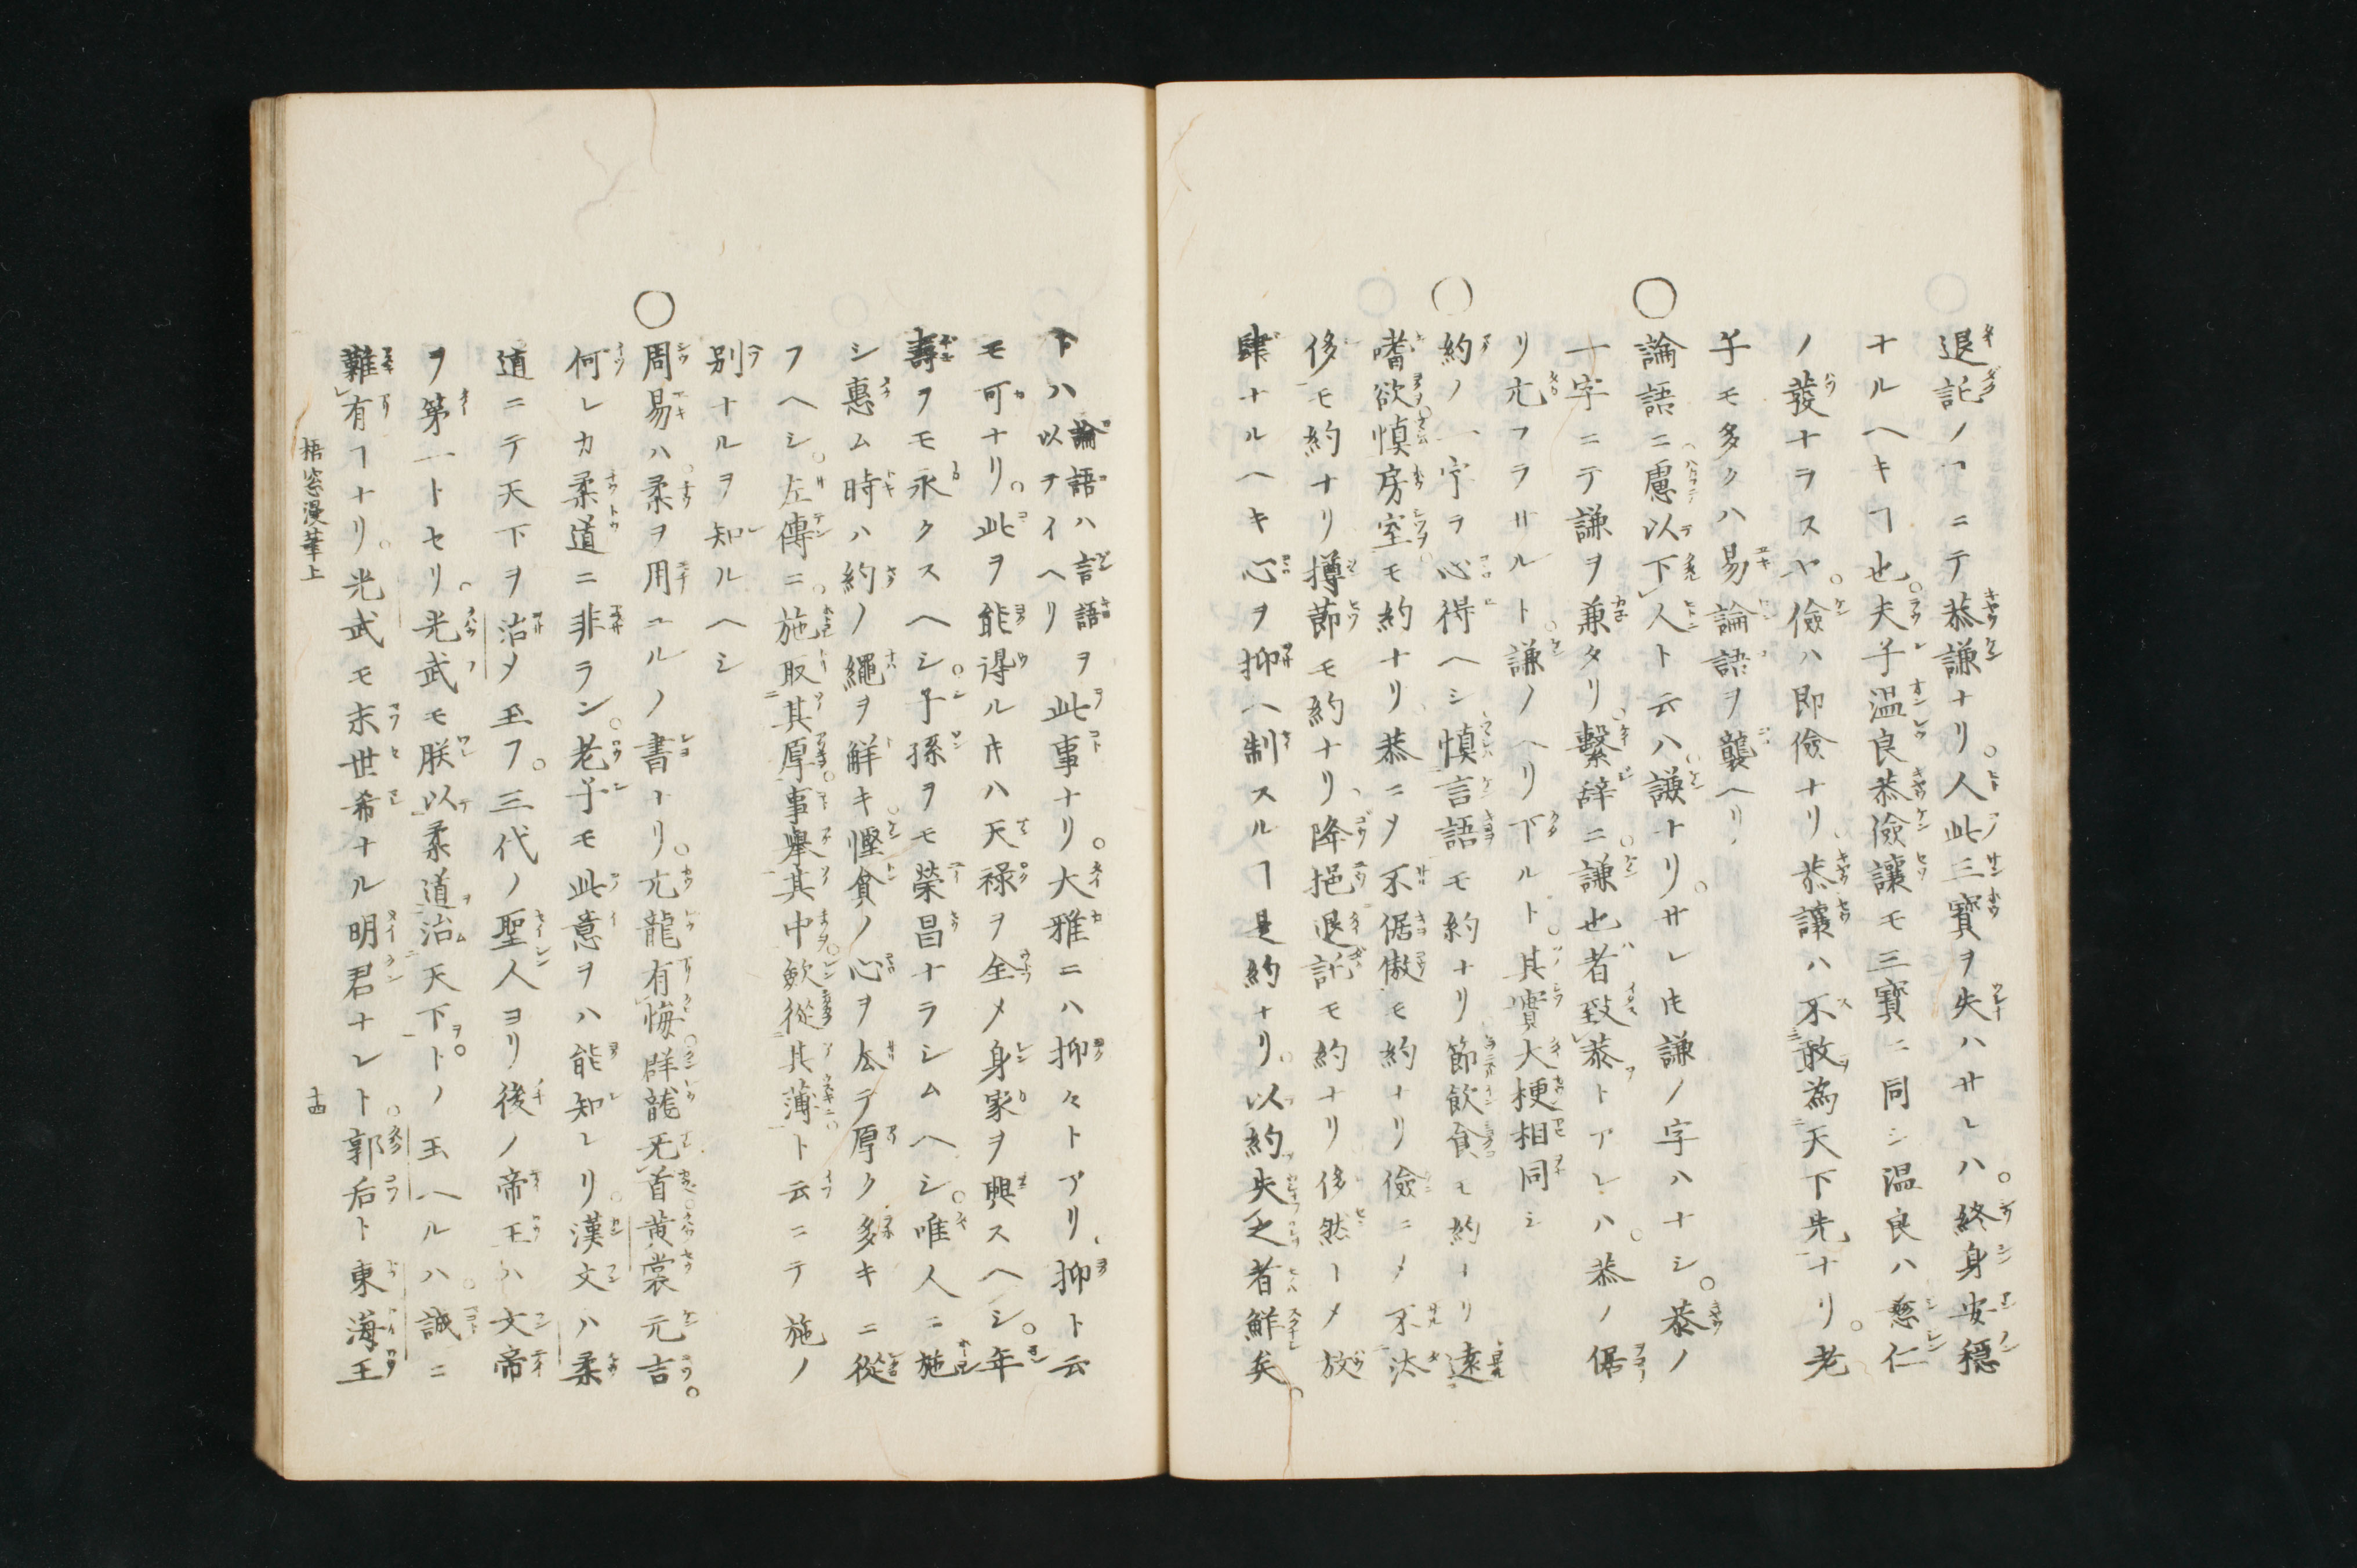 退託ノヿニテ恭謙ナリ。人此三寳ヲ失ハサレハ。終身安穏
ナルヘキヿ也。夫子温良恭儉讓モ三寳ニ同シ温良ハ慈仁
ノ發ナラスヤ。儉ハ即儉ナリ、恭讓ハ不敢為天下先ナリ。老
子モ多クハ易論語ヲ襲ヘリ、
○論語ニ慮以下人ト云ハ。謙ナリ。サレ𪜈謙ノ字ハナシ。恭ノ
一字ニテ謙ヲ兼タリ。繫辞ニ。謙也者致恭トアレハ。恭ノ倨
リ亢フラサルト。謙ノヘリ下ルト。其實大梗相同シ
○約ノ一字ヲ心得ヘシ慎言語モ約ナリ節飲食モ約ナリ遠
嗜欲。慎房室モ約ナリ、恭ニメ不倨傲モ約ナリ儉ニメ不汰
侈モ約ナリ撙節モ約ナリ、降挹退託モ約ナリ侈然トメ放
肆ナルヘキ心ヲ抑ヘ制スルヿ是約ナリ。以約失之者鮮矣。
下ハ論語ハ言語ヲ此事ナリ。大雅ニハ抑々トアリ、抑ト云
以ヲイヘリ
モ可ナリ。此ヲ能得ル𪜈ハ天禄ヲ全メ身家ヲ興スヘシ。年
壽ヲモ永クスヘシ。子孫ヲモ榮昌ナラシムヘシ。唯人ニ施
シ惠ム時ハ約ノ繩ヲ觧キ。慳貪ノ心ヲ厺テ厚ク多キニ從
フヘシ。左傳ニ。施取其厚。事擧其中。歛從其薄。ト云ニテ施ノ
別ナルヲ知ルヘシ
○周易ハ。柔ヲ用ユルノ書ナリ。亢龍有悔。群龍无首。黄裳元吉。
何レカ柔道ニ非ラン。老子モ此意ヲハ能知レリ。漢文ハ柔
道ニテ天下ヲ治メ玉フ。三代ノ聖人ヨリ後ノ帝王ハ文帝
ヲ第一トセリ。光武モ朕以柔道治天下。トノ玉ヘルハ。誠ニ
難有ヿナリ。光武モ末世希ナル明君ナレト。郭后ト東海王
梧窓漫筆上
十四